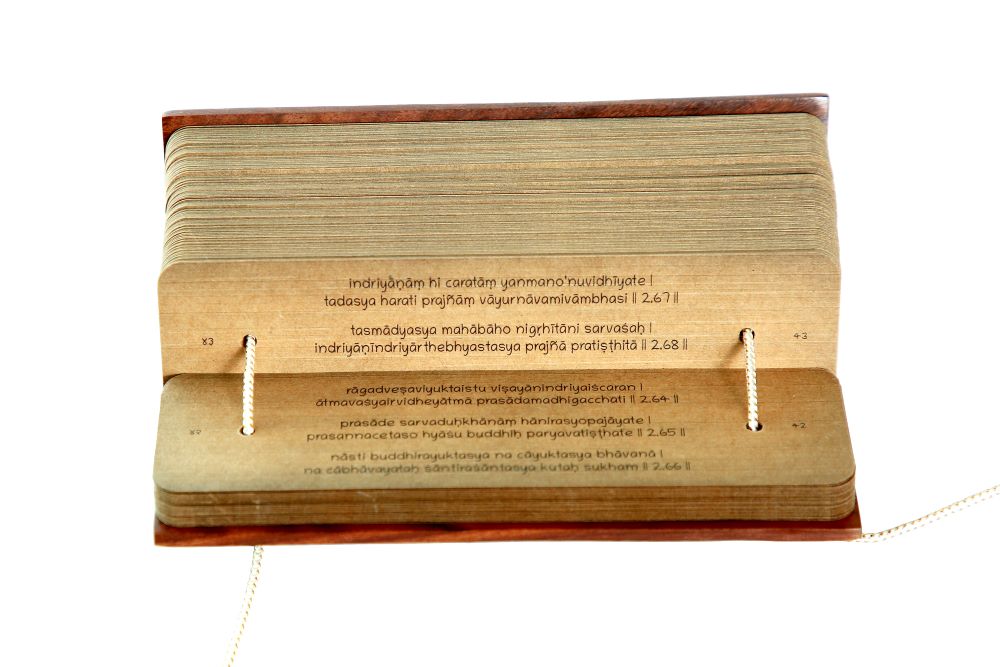 indriyāṇāṃ hi caratāṃ yanmano'nuvidhīyate |
tadasya harati prajñāṃ vāyurnāvamivāmbhasi || 2.67 ||
tasmādyasya mahābāho nigṛhītāni sarvaśaḥ |
४३ 43
indriyāṇīndriyārthebhyastasya prajñā pratiṣṭhitā || 2.68 ||
rāgadveṣaviyuktaistu viṣayānindriyaiścaran |
ātmavaśyairvidheyātmā prasādamadhigacchati || 2.64 ||
prasāde sarvaduḥkhānāṃ hānirasyopajāyate |
४२ 42
prasannacetaso hyāśu buddhiḥ paryavatiṣṭhate || 2.65 ||
nāsti buddhirayuktasya na cāyuktasya bhāvanā |
na cābhāvayataḥ śāntiraśāntasya kutaḥ sukham || 2.66 ||